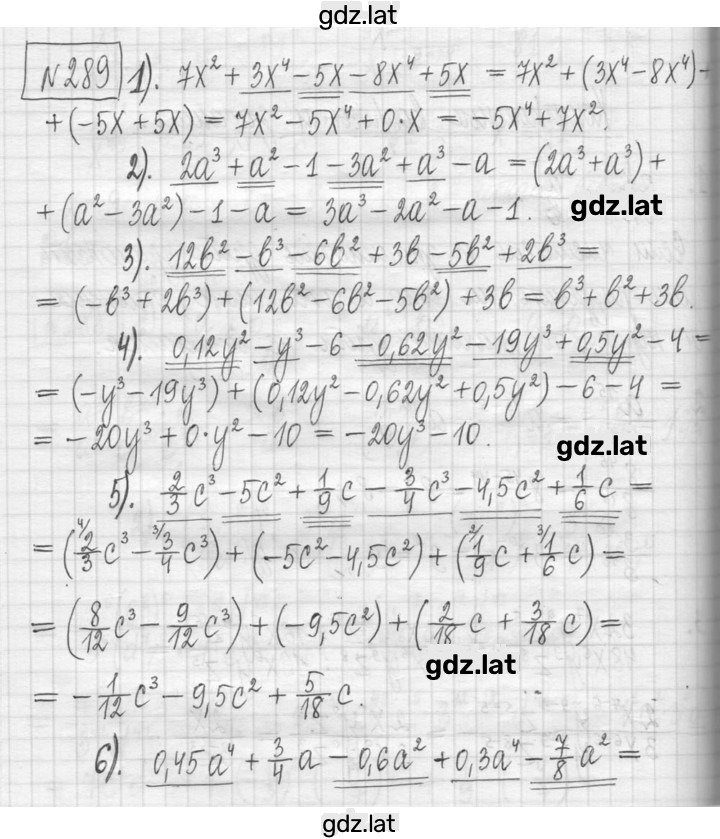 gdz.lat
№289 1). 7x² + 3x⁴ - 5x - 8x⁴ + 5x = 7x² + (3x⁴ - 8x⁴) +
+ (-5x + 5x) = 7x² - 5x⁴ + 0·x = -5x⁴ + 7x².
2). 2a³ + a² - 1 - 3a² + a³ - a = (2a³ + a³) +
+ (a² - 3a²) - 1 - a = 3a³ - 2a² - a - 1. gdz.lat
3). 12b² - b³ - 6b² + 3b - 5b² + 2b³ =
= (-b³ + 2b³) + (12b² - 6b² - 5b²) + 3b = b³ + b² + 3b.
4). 0,12y² - y³ - 6 - 0,62y² - 19y³ + 0,5y² - 4 =
= (-y³ - 19y³) + (0,12y² - 0,62y² + 0,5y²) - 6 - 4 =
= -20y³ + 0·y² - 10 = -20y³ - 10. gdz.lat
5). 2/3 c³ - 5c² + 1/9 c - 3/4 c³ - 4,5c² + 1/6 c =
= (⁴⁄2/3 c³ - ³⁄3/4 c³) + (-5c² - 4,5c²) + (²⁄1/9 c + ³⁄1/6 c) =
= (8/12 c³ - 9/12 c³) + (-9,5c²) + (2/18 c + 3/18 c) =
gdz.lat
= -1/12 c³ - 9,5c² + 5/18 c.
6). 0,45a⁴ + 3/4 a - 0,6a² + 0,3a⁴ - 7/8 a² =
gdz.lat